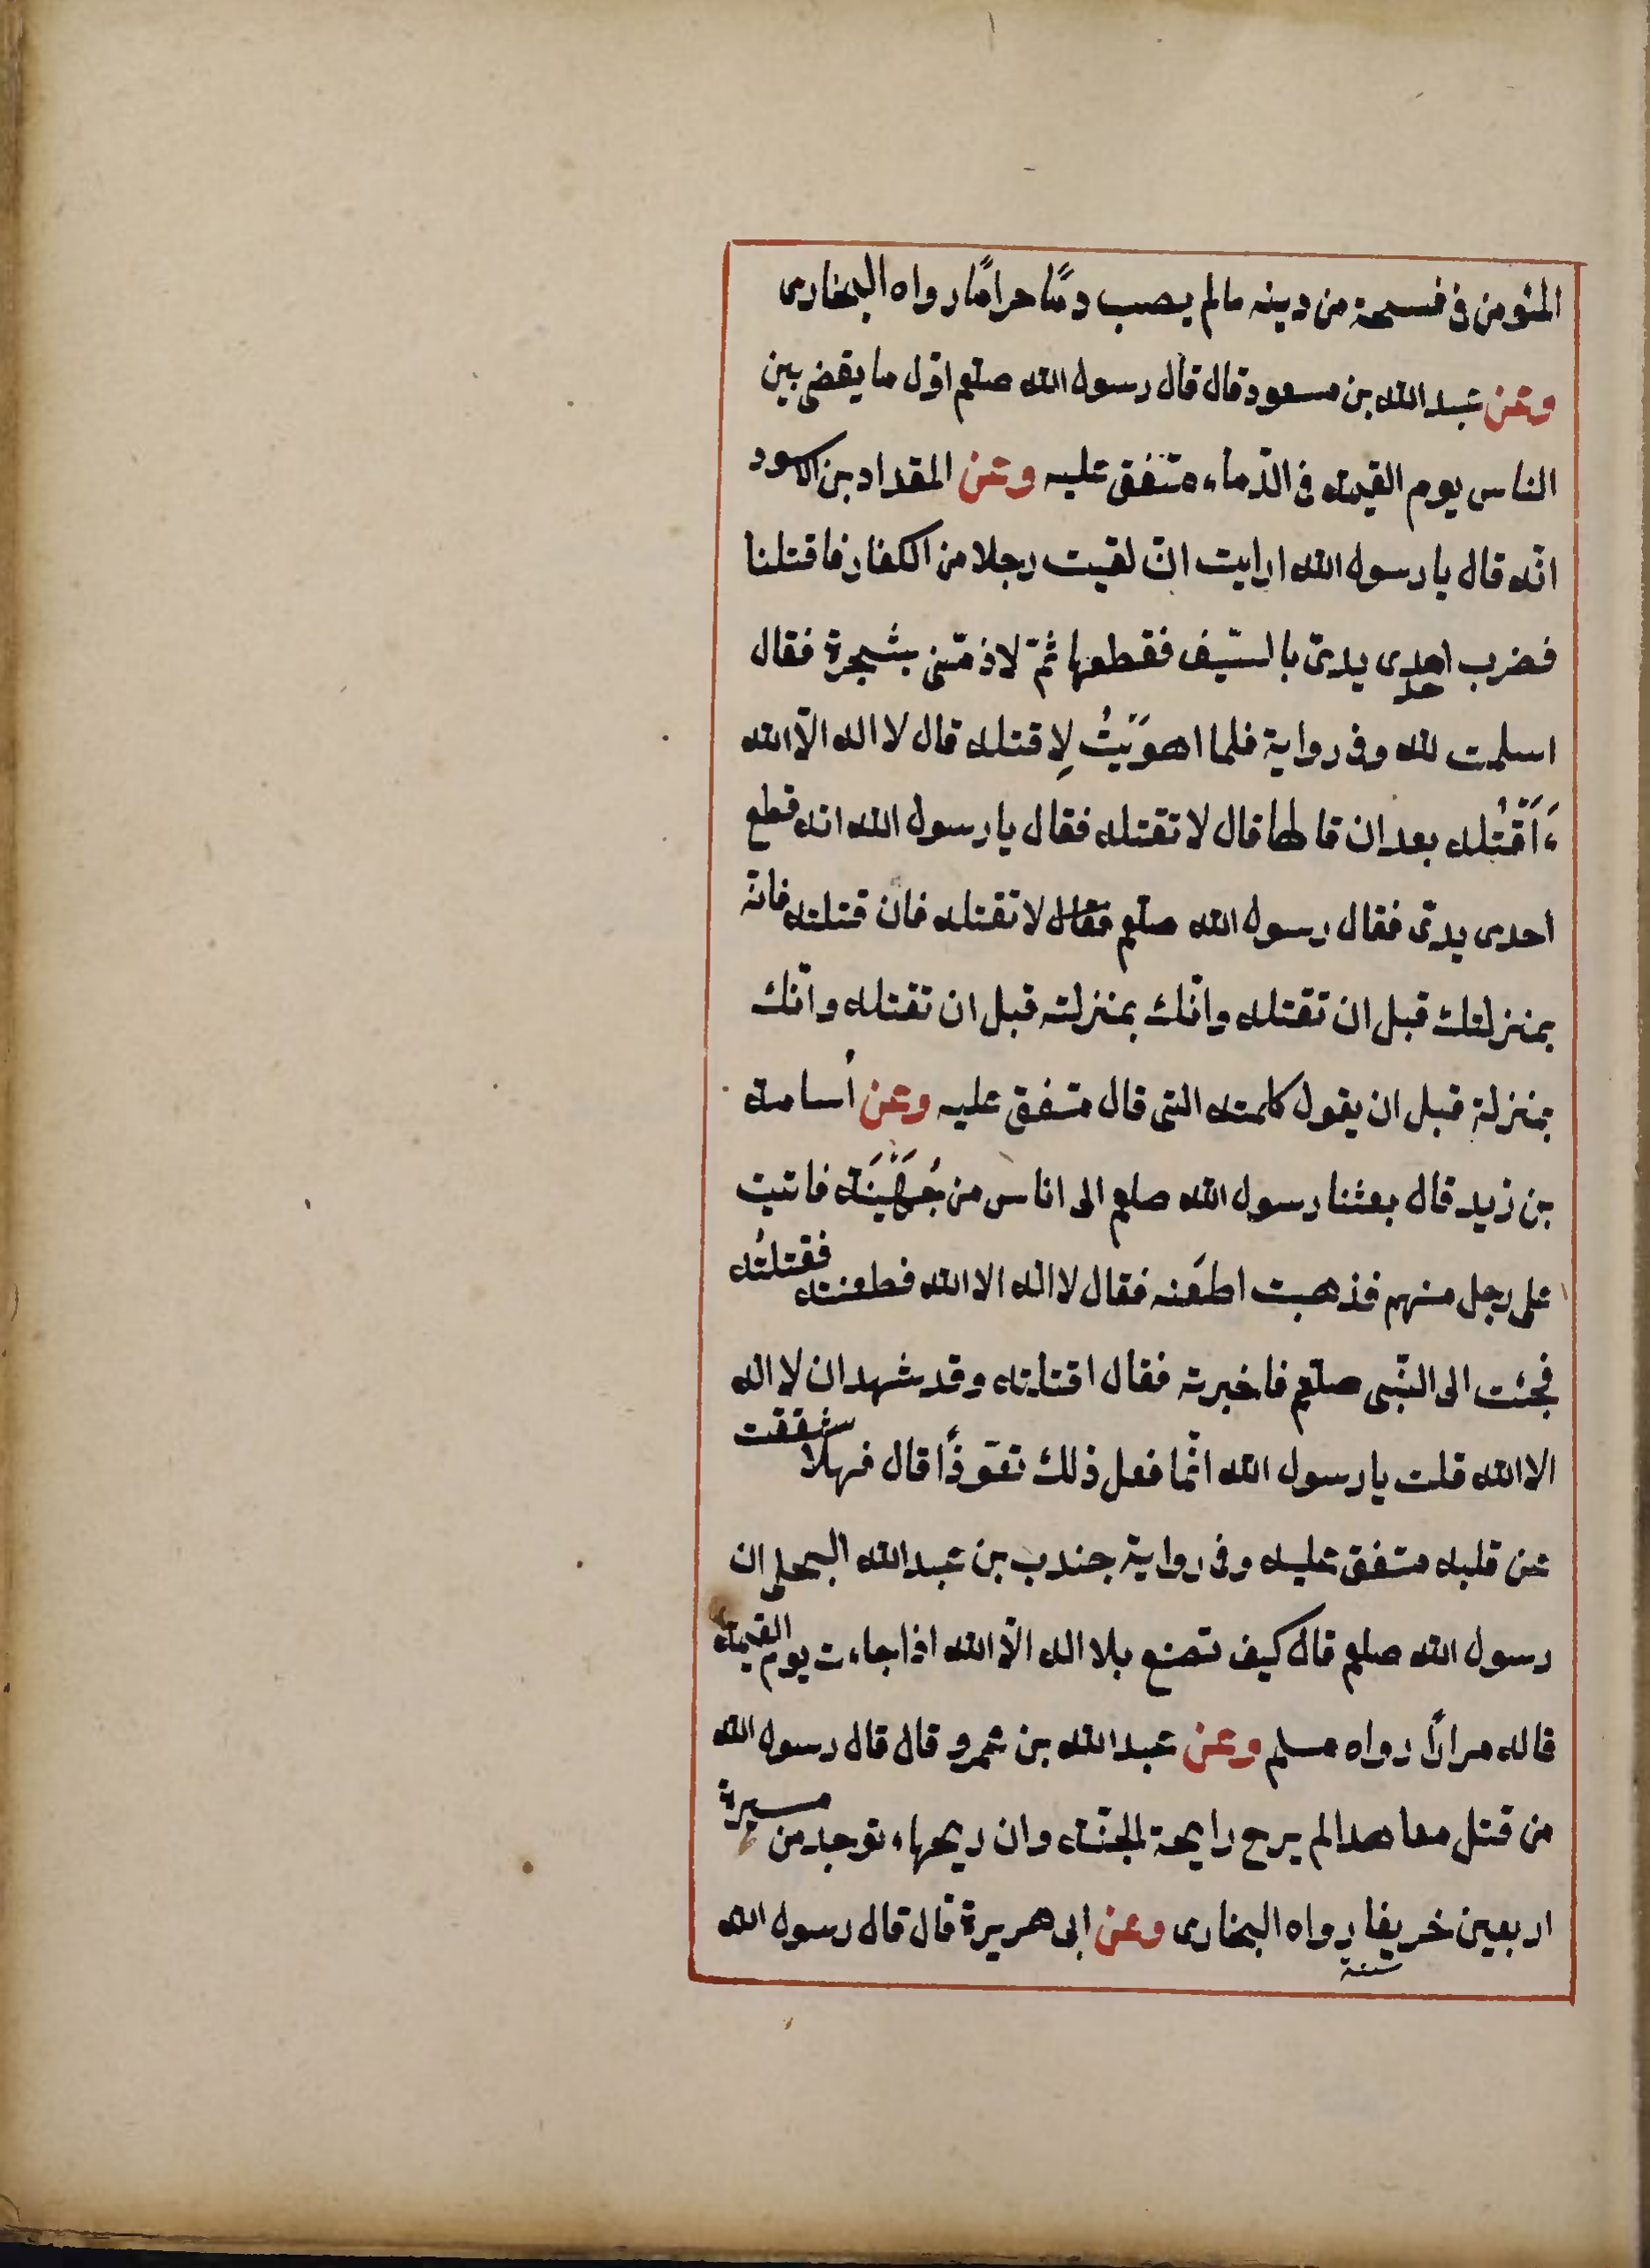 المئومن فى فسحة من دينه مالم يصب دمًا حرامًا رواه البخارى
وعن عبد الله بن مسعود قال قال رسول الله صلعم اوّل ما يقضى بين
الناس يوم القيمة فى الدّماء متفق عليه وعن المقداد بن الاسود
انّه قال يا رسول الله ارايت ان لقيت رجلا من الكفار فاقتلنا
فضرب احدى يدىّ بالسّيف فقطعها ثمّ لاذ منّى بشجرة فقال
اسلمت لله وفى رواية فلما اهوَيْتُ لِاقتله قال لا اله الّا الله
ءَاَقْتُله بعد ان قالها قال لا تقتله فقال يا رسول الله انه قطع
احدى يدىّ فقال رسول الله صلعم فقال لا تقتله فان قتلته فانّه
بمنزلتك قبل ان تقتله وانّك بمنزلته قبل ان تقتله وانّك
بمنزلة قبل ان يقول كلمته التى قال متفق عليه وعن أسامة
بن زيد قال بعثنا رسول الله صلعم الى اناس من جُهَيْنَة فاتيت
على رجل منهم فذهبت اطعَنه فقال لا اله الا الله فطعنته فقتلتُه
فجئت الى النّبى صلعم فاخبرته فقال اقتلته وقد شهد ان لا اله
الا الله قلت يا رسول الله انّما فعل ذلك تعوّذًا قال فهلّا شققت
عن قلبه متفق عليه وفى رواية جندب بن عبد الله البجلى ان
رسول الله صلعم قال كيف تصنع بلا اله الّا الله اذا جاءت يوم القيمة
قاله مرارًا رواه مسلم وعن عبد الله بن عمرو قال قال رسول الله
من قتل معاهدا لم يرح رايحة الجنّة وان ريحها توجد من مسيرة
اربعين خريفا رواه البخارى وعن ابى هريرة قال قال رسول الله
سنة